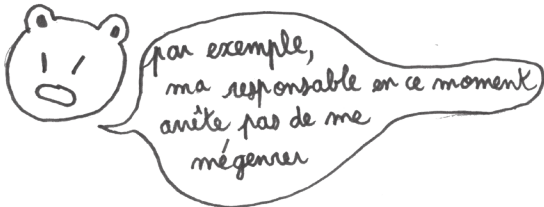 par exemple,
ma responsable en ce moment
arrête pas de me
mégenrer